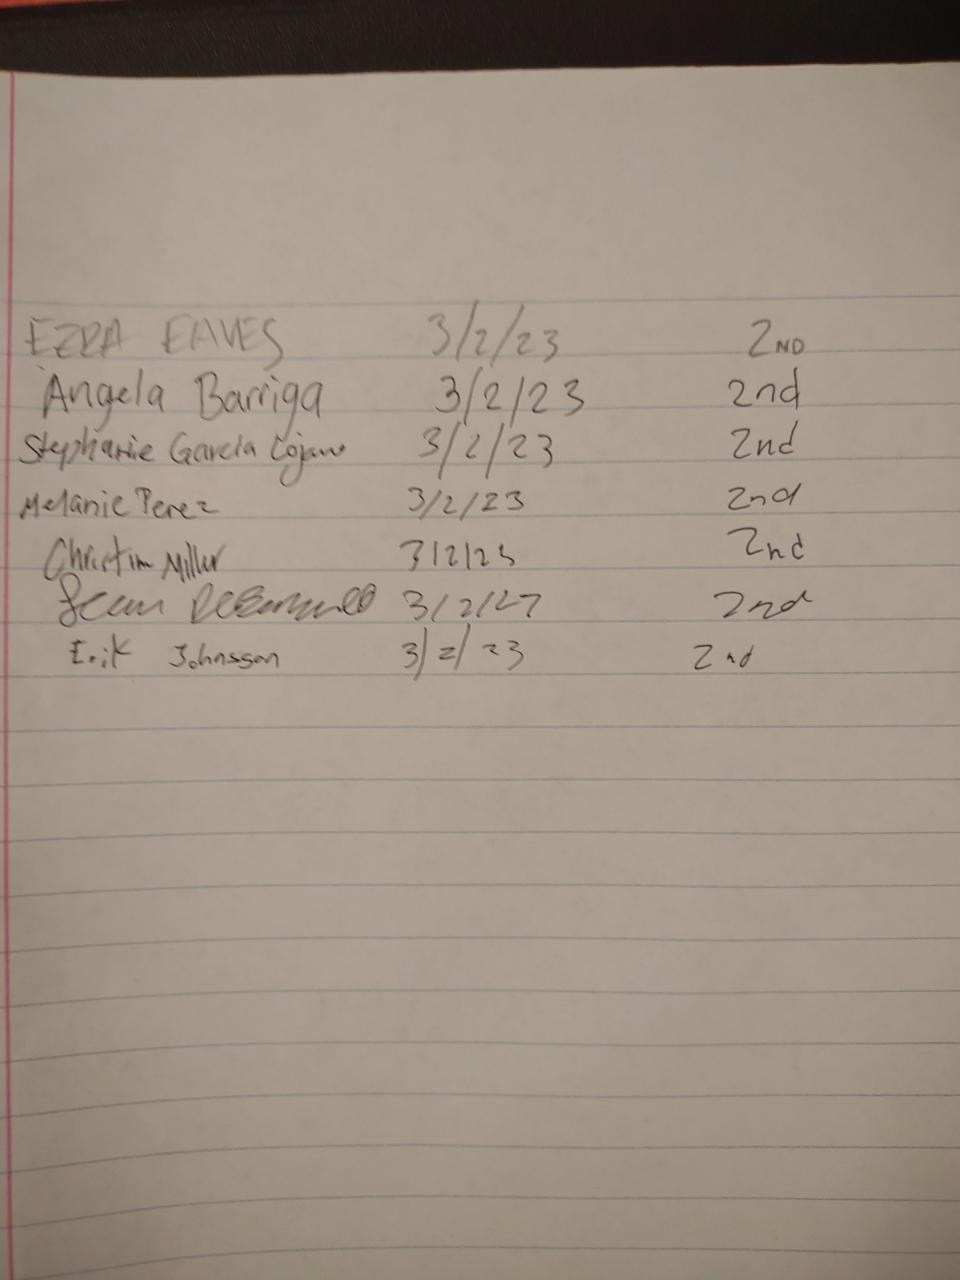 EZRA EAVES 3/2/23 2ND
Angela Barriga 3/2/23 2nd
Stephanie Garcia Lojano 3/2/23 2nd
Melanie Perez 3/2/23 2nd
Christian Miller 3/2/23 2nd
3/2/27 2nd
Erik Johnsson 3/2/23 2nd